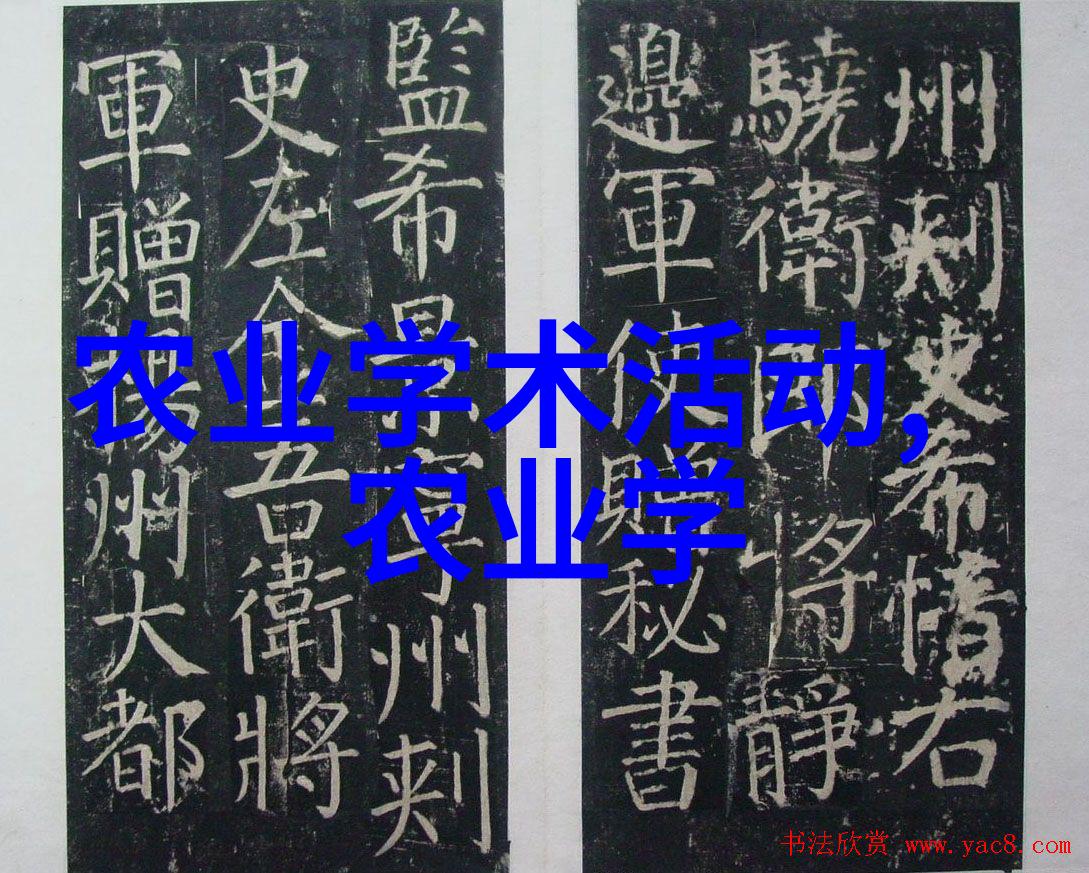 州刺史希愔右
驍衛郎將靜
邊軍使贈秘書
監希景寧州刺
史左金吾衛將
軍贈揚州大都
农业学术活动,
农业学
书法欣赏 www.yac8.com